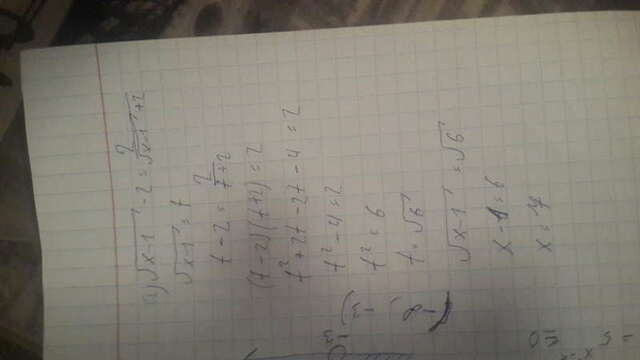 а) √x-1 - 2 = 2/(√x-1 + 2)
√x-1 = t
t - 2 = 2/(t+2)
(t-2)(t+2) = 2
t² + 2t - 2t - 4 = 2
t² - 4 = 2
t² = 6
t = √6
√x-1 = √6
x - 1 = 6
x = 7
-3
(-∞, -3)